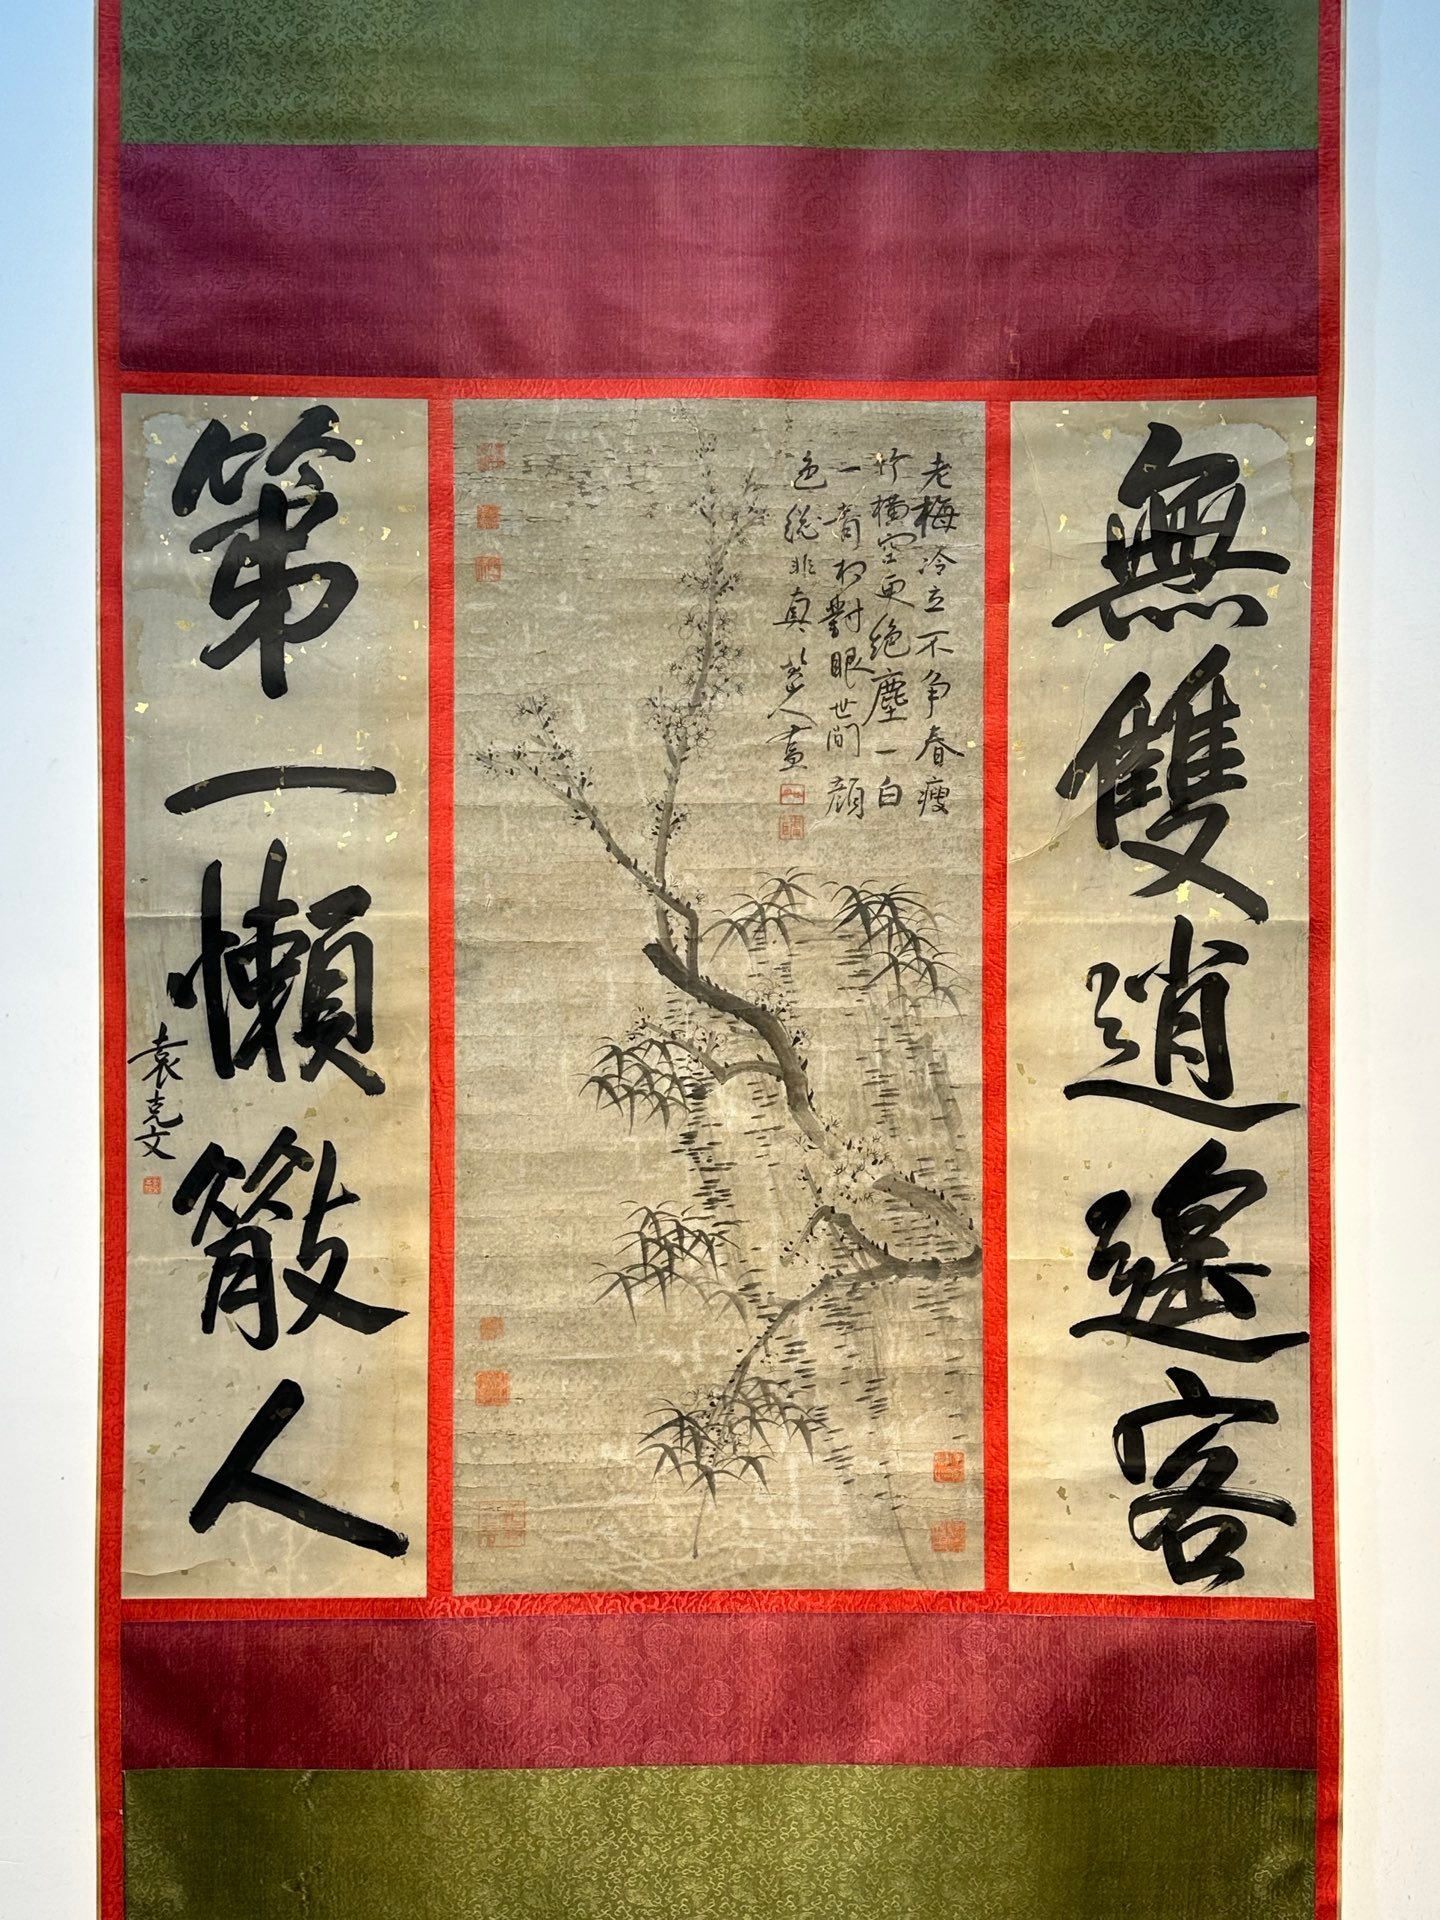 無雙逍遙客
老梅冷立不争春瘦
竹橫空更絕塵一白
一青相對眼世間顔
色総非真 八大山人畫
第一懶散人
袁克文